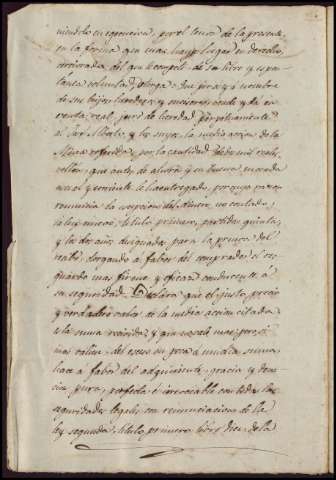 niendolo en egecucion, por el tenor de la presente,
en la forma que mas haya lugar en derecho,
cerciorado del que le compete de su libre y espon-
tanea voluntad, otorga: Que por si y a nombre
de sus hijos, herederos y sucesores, vende y da en
venta real, por juro de heredad perpetuamente
al y los suyos la media accion de la
Mina referida, por la cantidad de dos mil reales
vellon, que antes de ahora y en buena moneda
usual y corriente le ha entregado, por cuya razon
renuncia la escepcion del dinero no contado,
la ley nueve, titulo primero, partida quinta
y los dos años designados para la prueba del
recibo, otorgando a fabor del comprador el res-
guardo mas firme y eficaz conducente a
su seguridad. Declara que el justo precio
y verdadero valor de la media accion citada
es la suma recibida, y que no vale mas, pero si
mas valiese, del esceso en poca o mucha suma,
hace a fabor del adquirente, gracia y dona-
cion pura, perfecta e irrevocable con todas las
seguridades legales, con renunciacion de la
ley segunda, titulo primero, libro diez de la